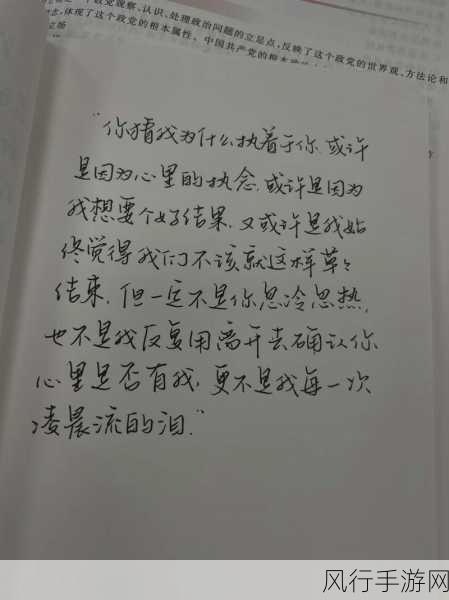 政党观察、认识、处理政治问题的立足点,反映了这个政党的世界观、方法论和
体现了这个政党的根本属性。中国共产党的根本政治
立场
“你猜我为什么执着于你.或许
是因为心里的执念.或许是因为
我想要个好结果.又或许是我始
终觉得我们不该就这样草々
结束.但一定不是你忽冷忽热,
也不是我反复用离开去确认你
心里是否有我.更不是我每一次
凌晨流的泪.”
风行手游网